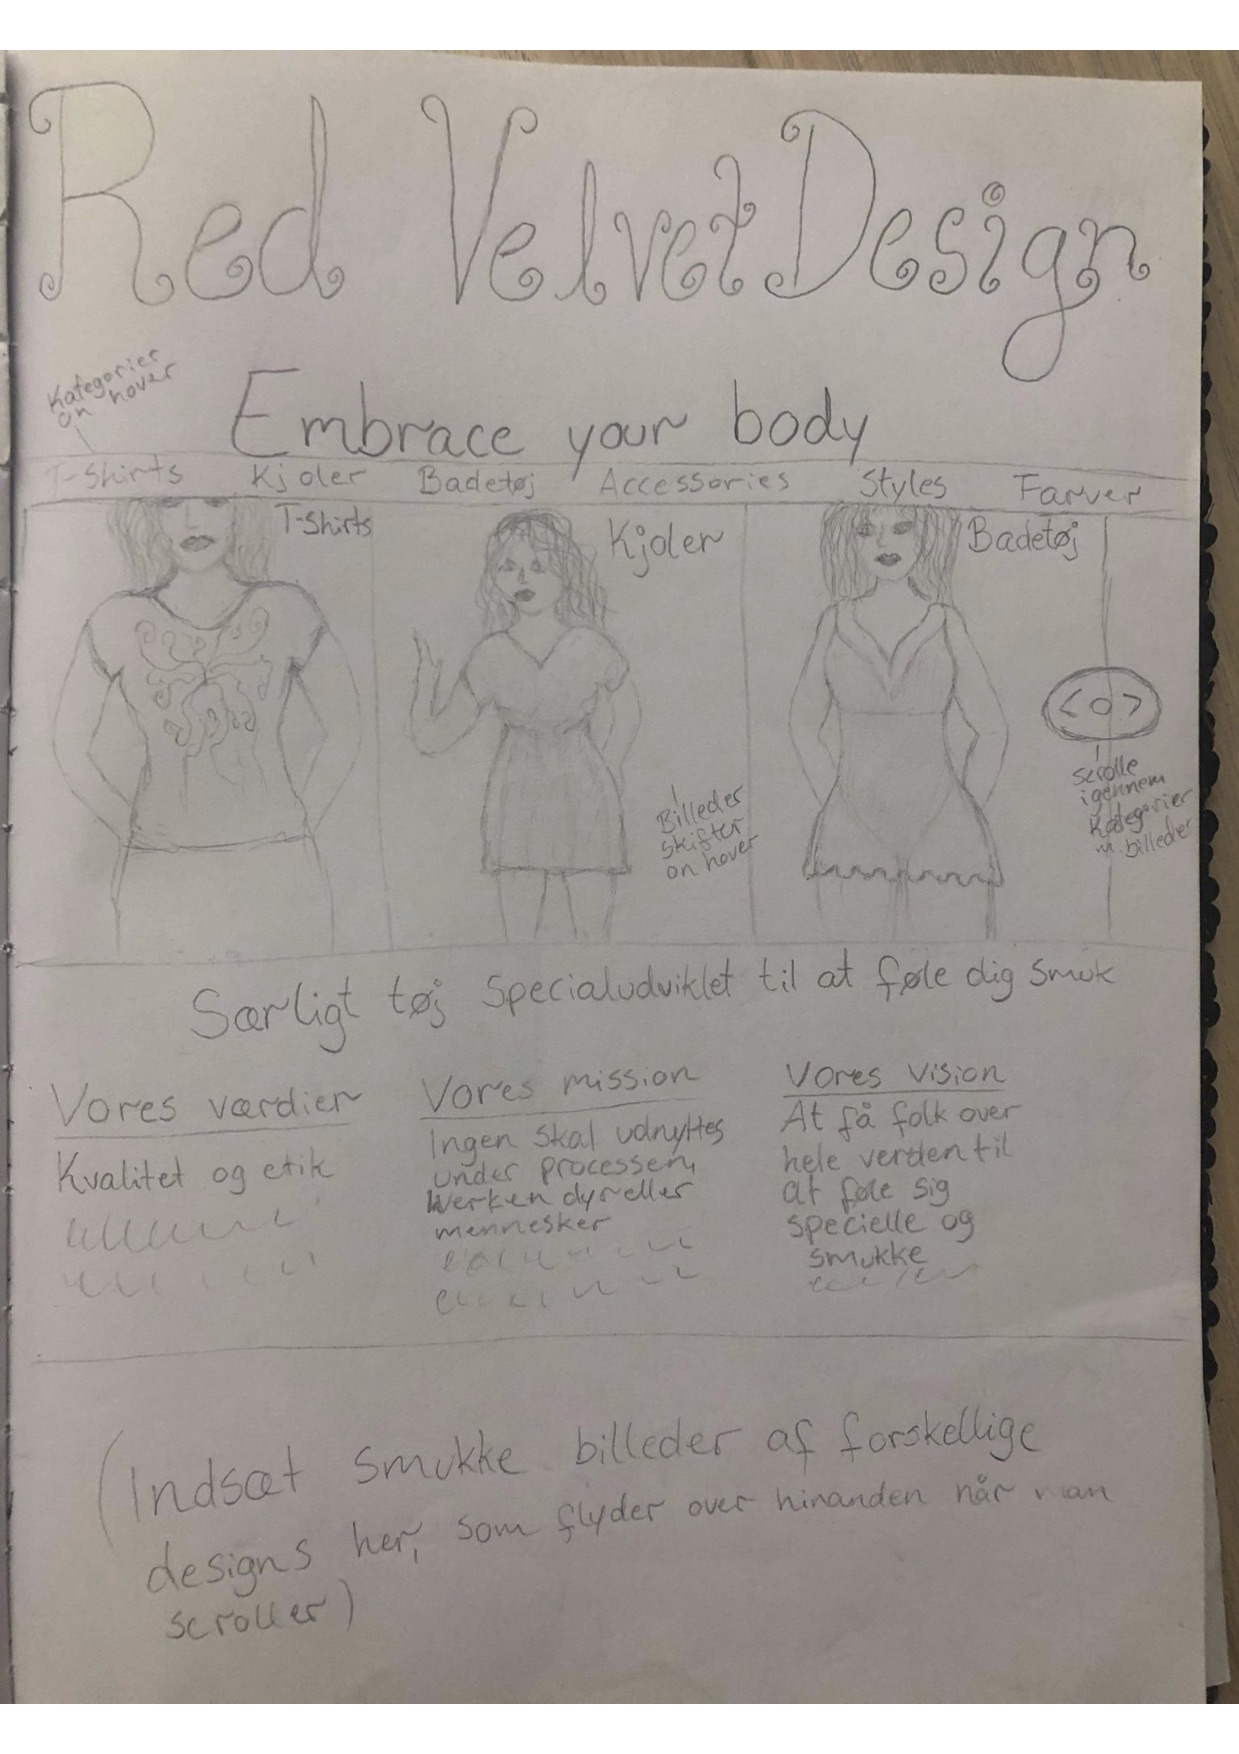 Red Velvet Design
Kategorier
on hover
Embrace your body
T-Shirts Kjoler Badetøj Accessories Styles Farver
T-Shirts
Kjoler
Badetøj
< o >
Scrolle
igennem
Kategorier
m. billeder
Billeder
skifter
on hover
Særligt tøj Specialudviklet til at føle dig smuk
Vores værdier
Kvalitet og etik
Vores mission
Ingen skal udnyttes
under processen,
hverken dyr eller
mennesker
Vores vision
At få folk over
hele verden til
at føle sig
specielle og
smukke
(Indsæt smukke billeder af forskellige
designs her, som flyder over hinanden når man
scroller)